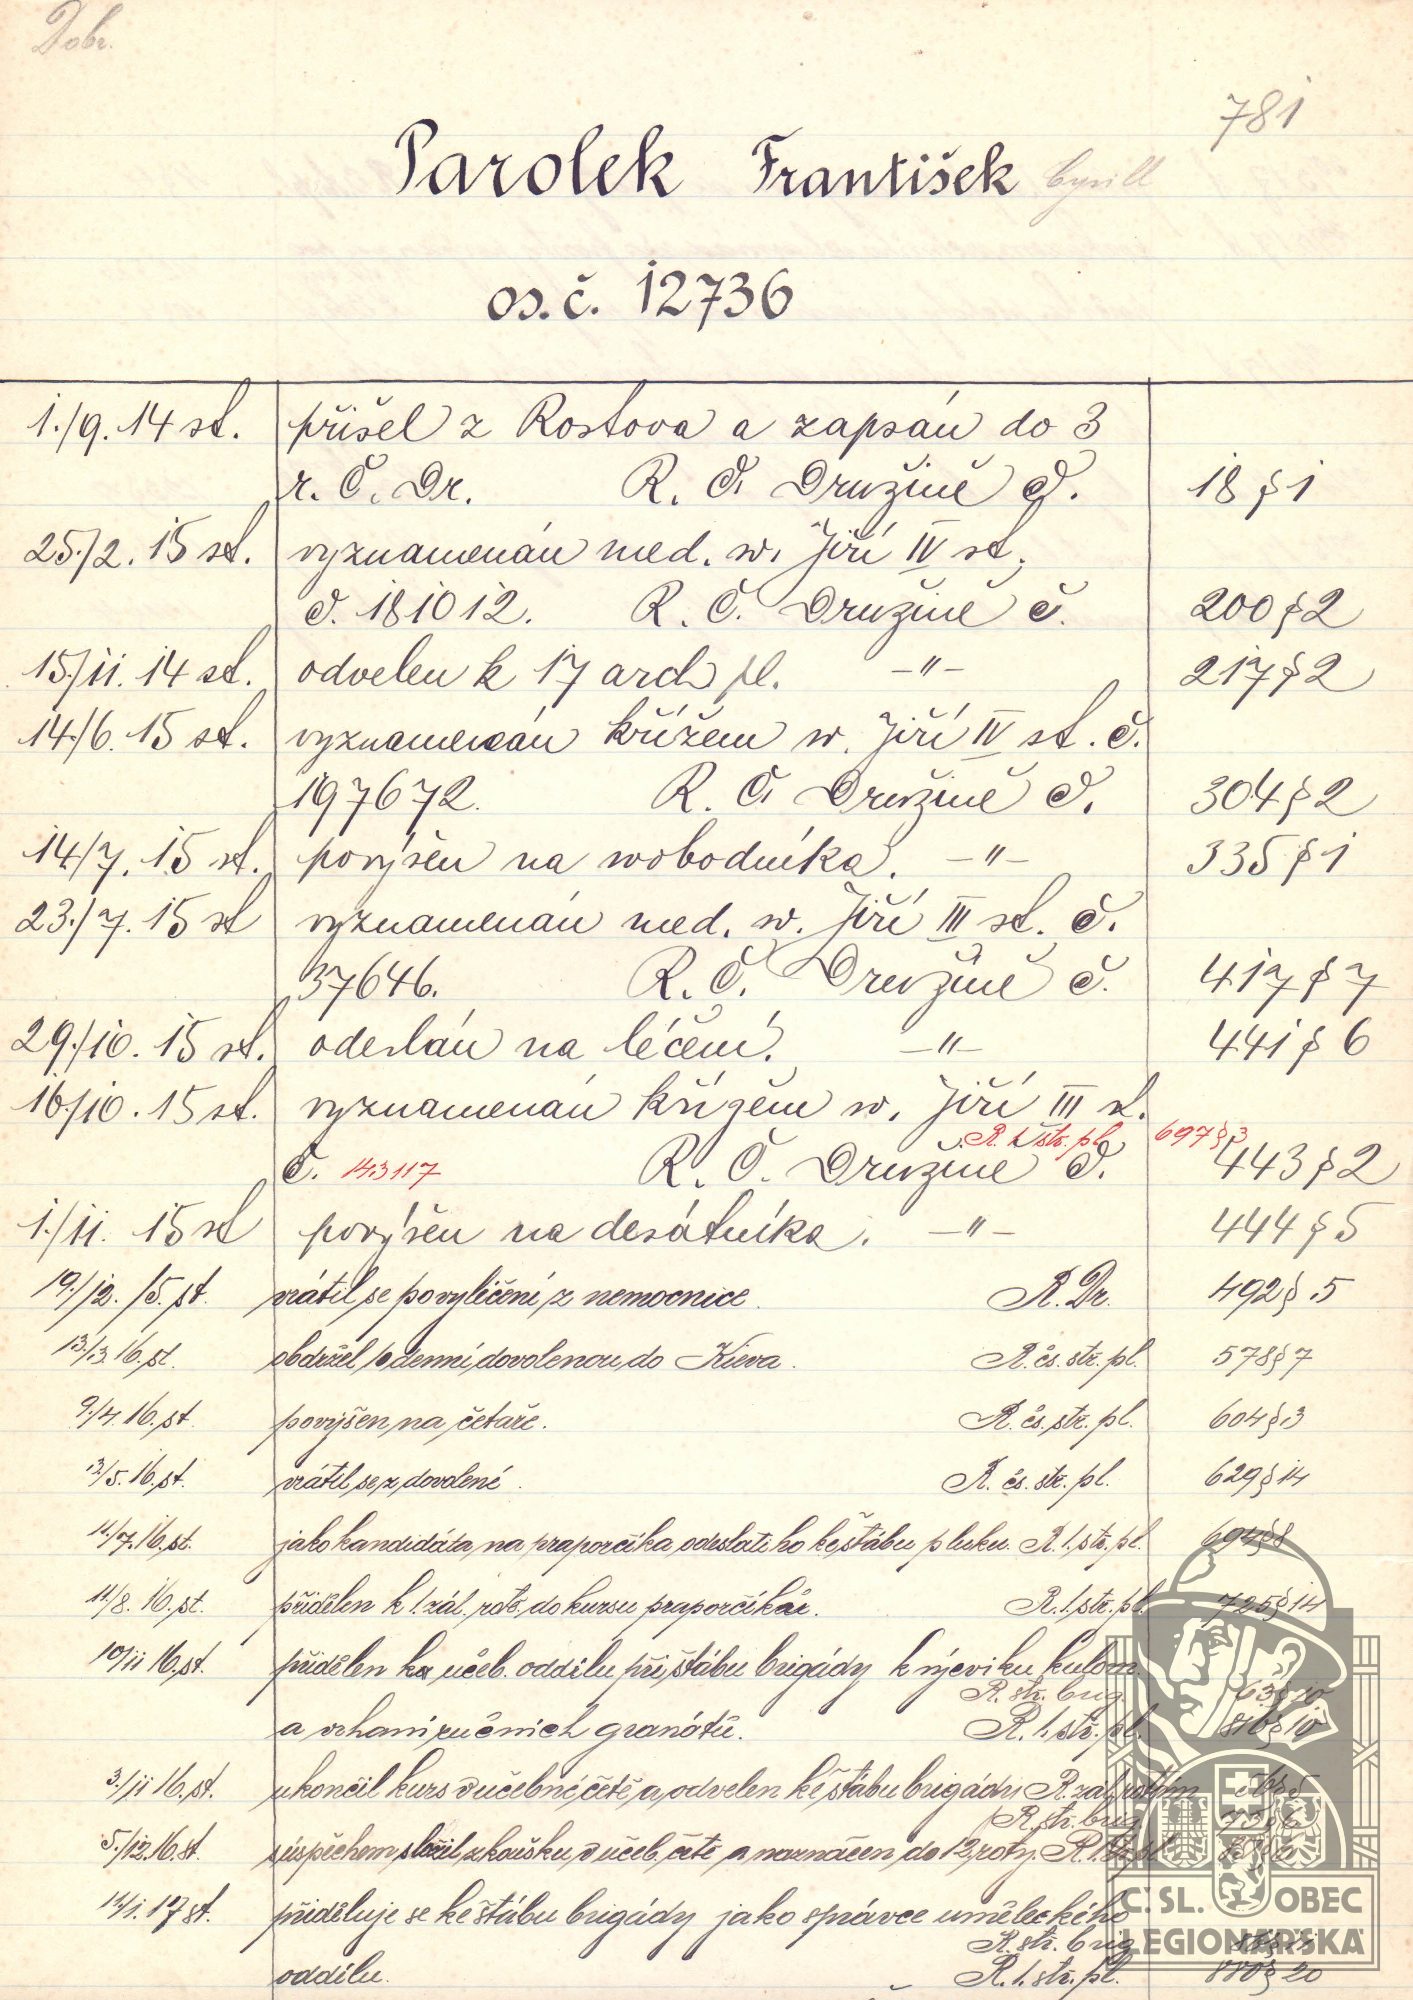 Dobr.
781
Parolek František Cyrill
os.č. 12736
1./9. 14 st. přišel z Rostova a zapsán do 3
r. Č. Dr. R. Č. Družině č. 18 § 1
25./2. 15 st. vyznamenán med. sv. Jiří IV st.
č. 181012. R. Č. Družině č. 200 § 2
15./11. 14 st. odvelen k 17 arch pl. —"— 217 § 2
14./6. 15 st. vyznamenán křížem sv. Jiří IV st. č.
197672. R. Č. Družině č. 304 § 2
14./7. 15 st. povýšen na svobodníka. —"— 335 § 1
23./7. 15 st vyznamenán med. sv. Jiří III st. č.
37646. R. Č. Družině č. 417 § 7
29./10. 15 st. odeslán na léčení. —"— 441 § 6
16./10. 15 st. vyznamenán křížem sv. Jiří III st.
R. 1. str. pl. 697 § 3
č. 143117 R. Č. Družině č. 443 § 2
1./11. 15 st povýšen na desátníka. —"— 444 § 5
19./12. 15. st. vrátil se po vyléčení z nemocnice. R. Dr. 492 § 5
13./3. 16. st. obdržel denní dovolenou do Kieva. R. čs. stř. pl. 578 § 7
9./4. 16. st. povýšen na četaře. R. čs. stř. pl. 604 § 3
/5. 16. st. vrátil se z dovolené. R. čs. stř. pl. 629 § 14
11./7. 16. st. jako kandidáta na praporčíka odeslati ho ke štábu pluku. R. 1. stř. pl. 694 § 8
11./8. 16. st. přidělen k 1. zál. rotě do kursu praporčíků. R. 1. stř. pl. 725 § 14
10/11 16. st. přidělen ku učeb. oddílu při štábu brigády k výcviku kulom.
R. stř. brig. 63 § 10
a vrhaní ručních granátů. R. 1. stř. pl. 816 § 10
3./11 16. st. ukončil kurs v učebné četě a odvelen ke štábu brigády R. zál. rotám
R. stř. brig. 73 § 6
5./12. 16. st. s úspěchem složil zkoušku v učeb. četě a naznačen do 12. roty. R. 1. stř. pl.
11/1. 17 st. přiděluje se ke štábu brigády jako správce uměleckého
R. stř. brig.
oddílu. R. 1. stř. pl. 880 § 20
Č. SL. OBEC
LEGIONÁŘSKÁ